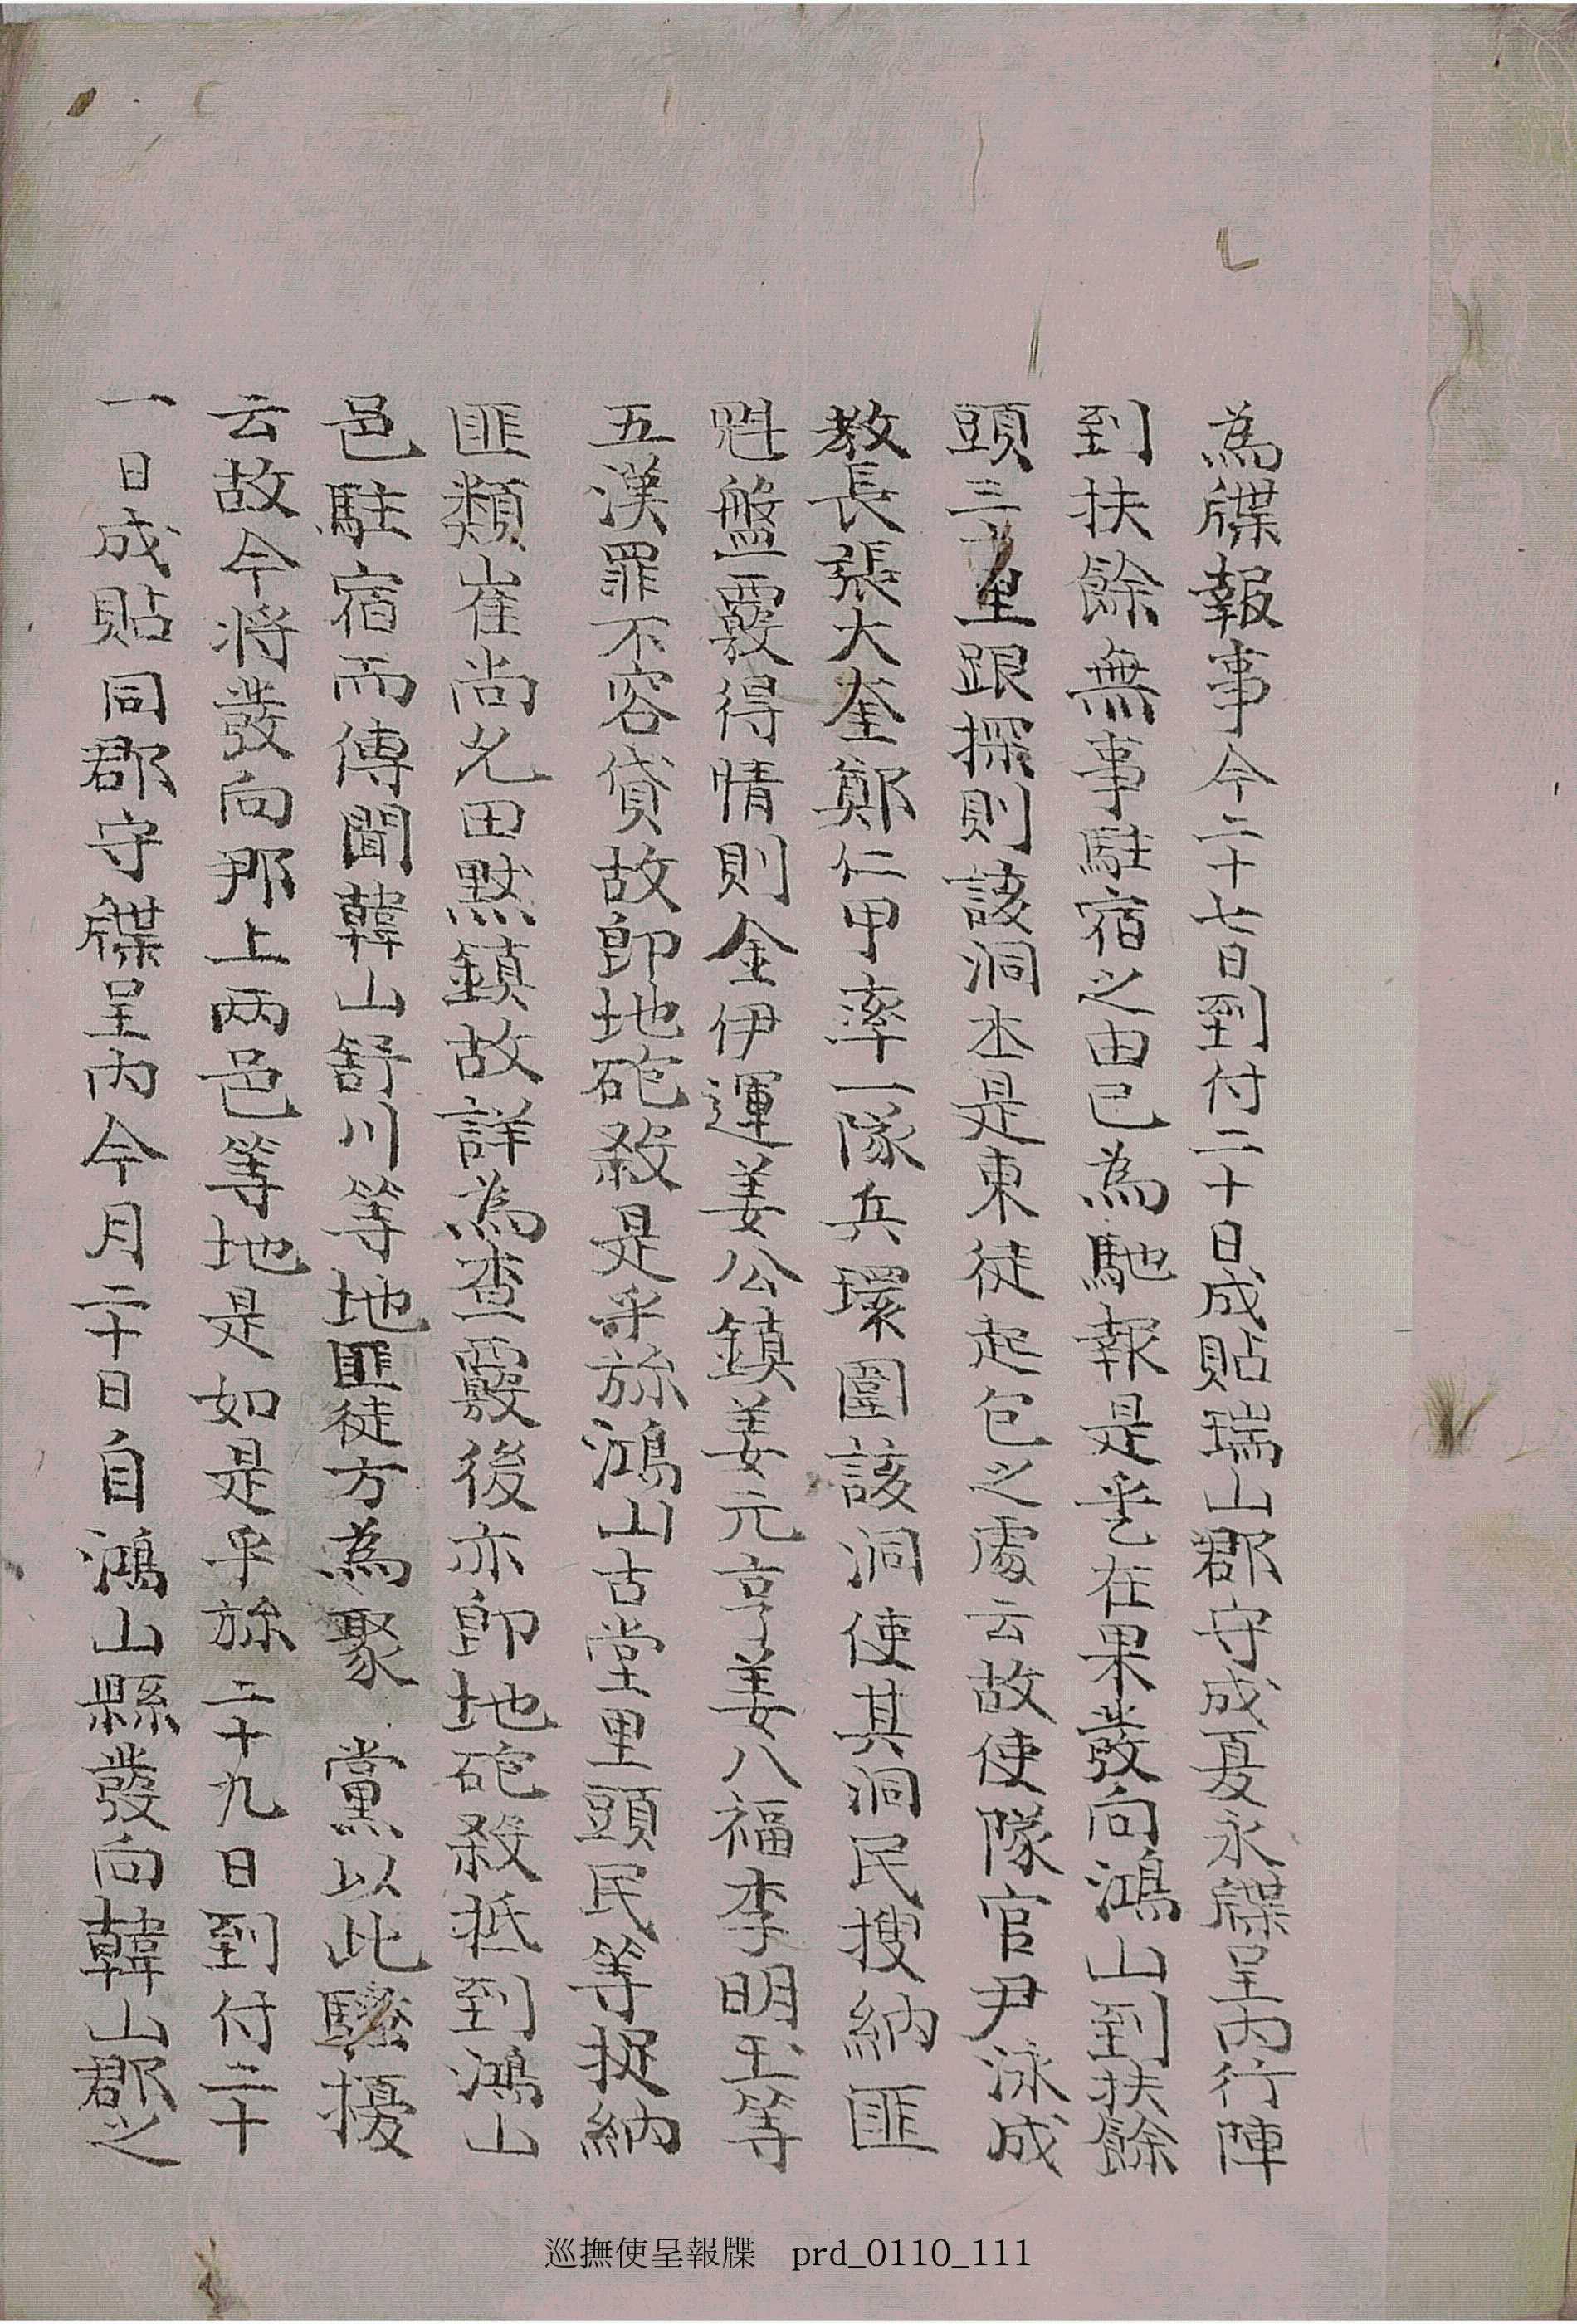 為牒報事今二十七日到付二十日成貼瑞山郡守成夏永牒呈內行陣
到扶餘無事駐宿之由已為馳報是乎乙在果發向鴻山到扶餘
頭三十里跟探則該洞丕是東徒起包之處云故使隊官尹泳成
教長張大奎鄭仁甲率一隊兵環圍該洞使其洞民搜納匪
魁盤覈得情則金伊運姜公鎮姜元亨姜八福李明玉等
五漢罪不容貸故卽地砲殺是乎旀鴻山古堂里頭民等捉納
匪類崔尚兊田默鎮故詳為查覈後亦卽地砲殺抵到鴻山
邑駐宿而傳聞韓山舒川等地匪徒方為聚 黨以此騷擾
云故今將發向那上兩邑等地是如是乎旀二十九日到付二十
一日成貼同郡守牒呈內今月二十日自鴻山縣發向韓山郡之
巡撫使呈報牒 prd_0110_111